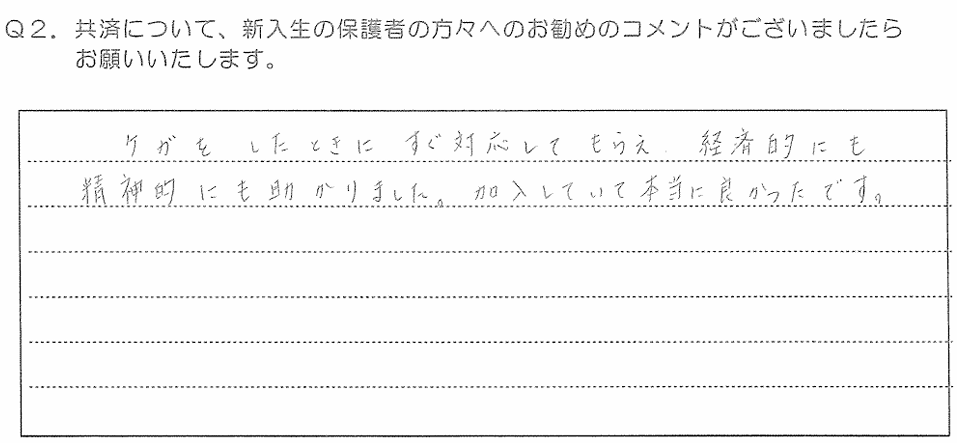 Q2．共済について、新入生の保護者の方々へのお勧めのコメントがございましたら
お願いいたします。
ケガをしたときにすぐ対応してもらえ、経済的にも
精神的にも助かりました。加入していて本当に良かったです。